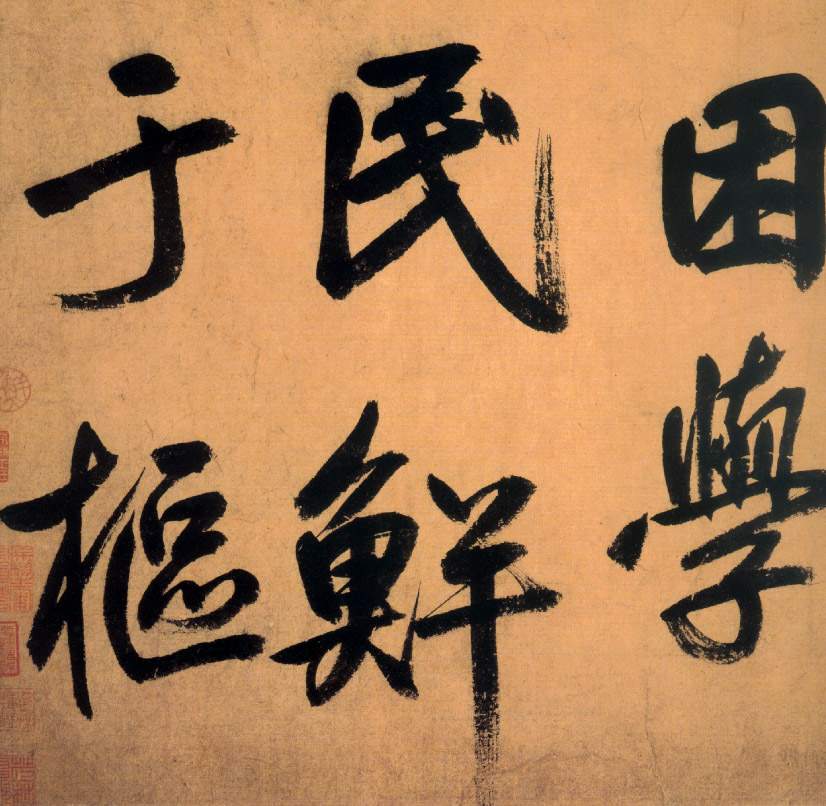 困學
民鮮
于樞